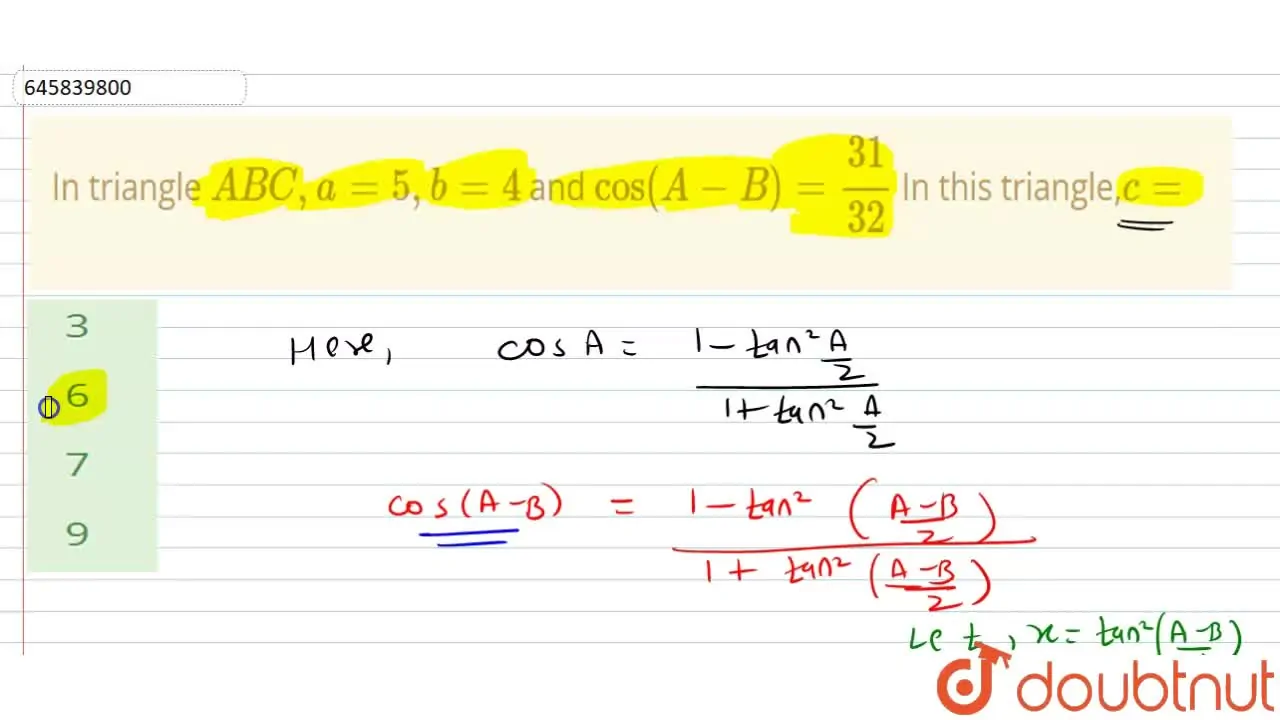 645839800
In triangle ABC, a = 5, b = 4 and cos(A − B) = 31/32 In this triangle,c =
3
6
7
9
Here, cos A = 1 - tan² A/2 / 1 + tan² A/2
cos(A-B) = 1 - tan² (A-B/2) / 1 + tan² (A-B/2)
Let, x = tan² (A-B)
doubtnut